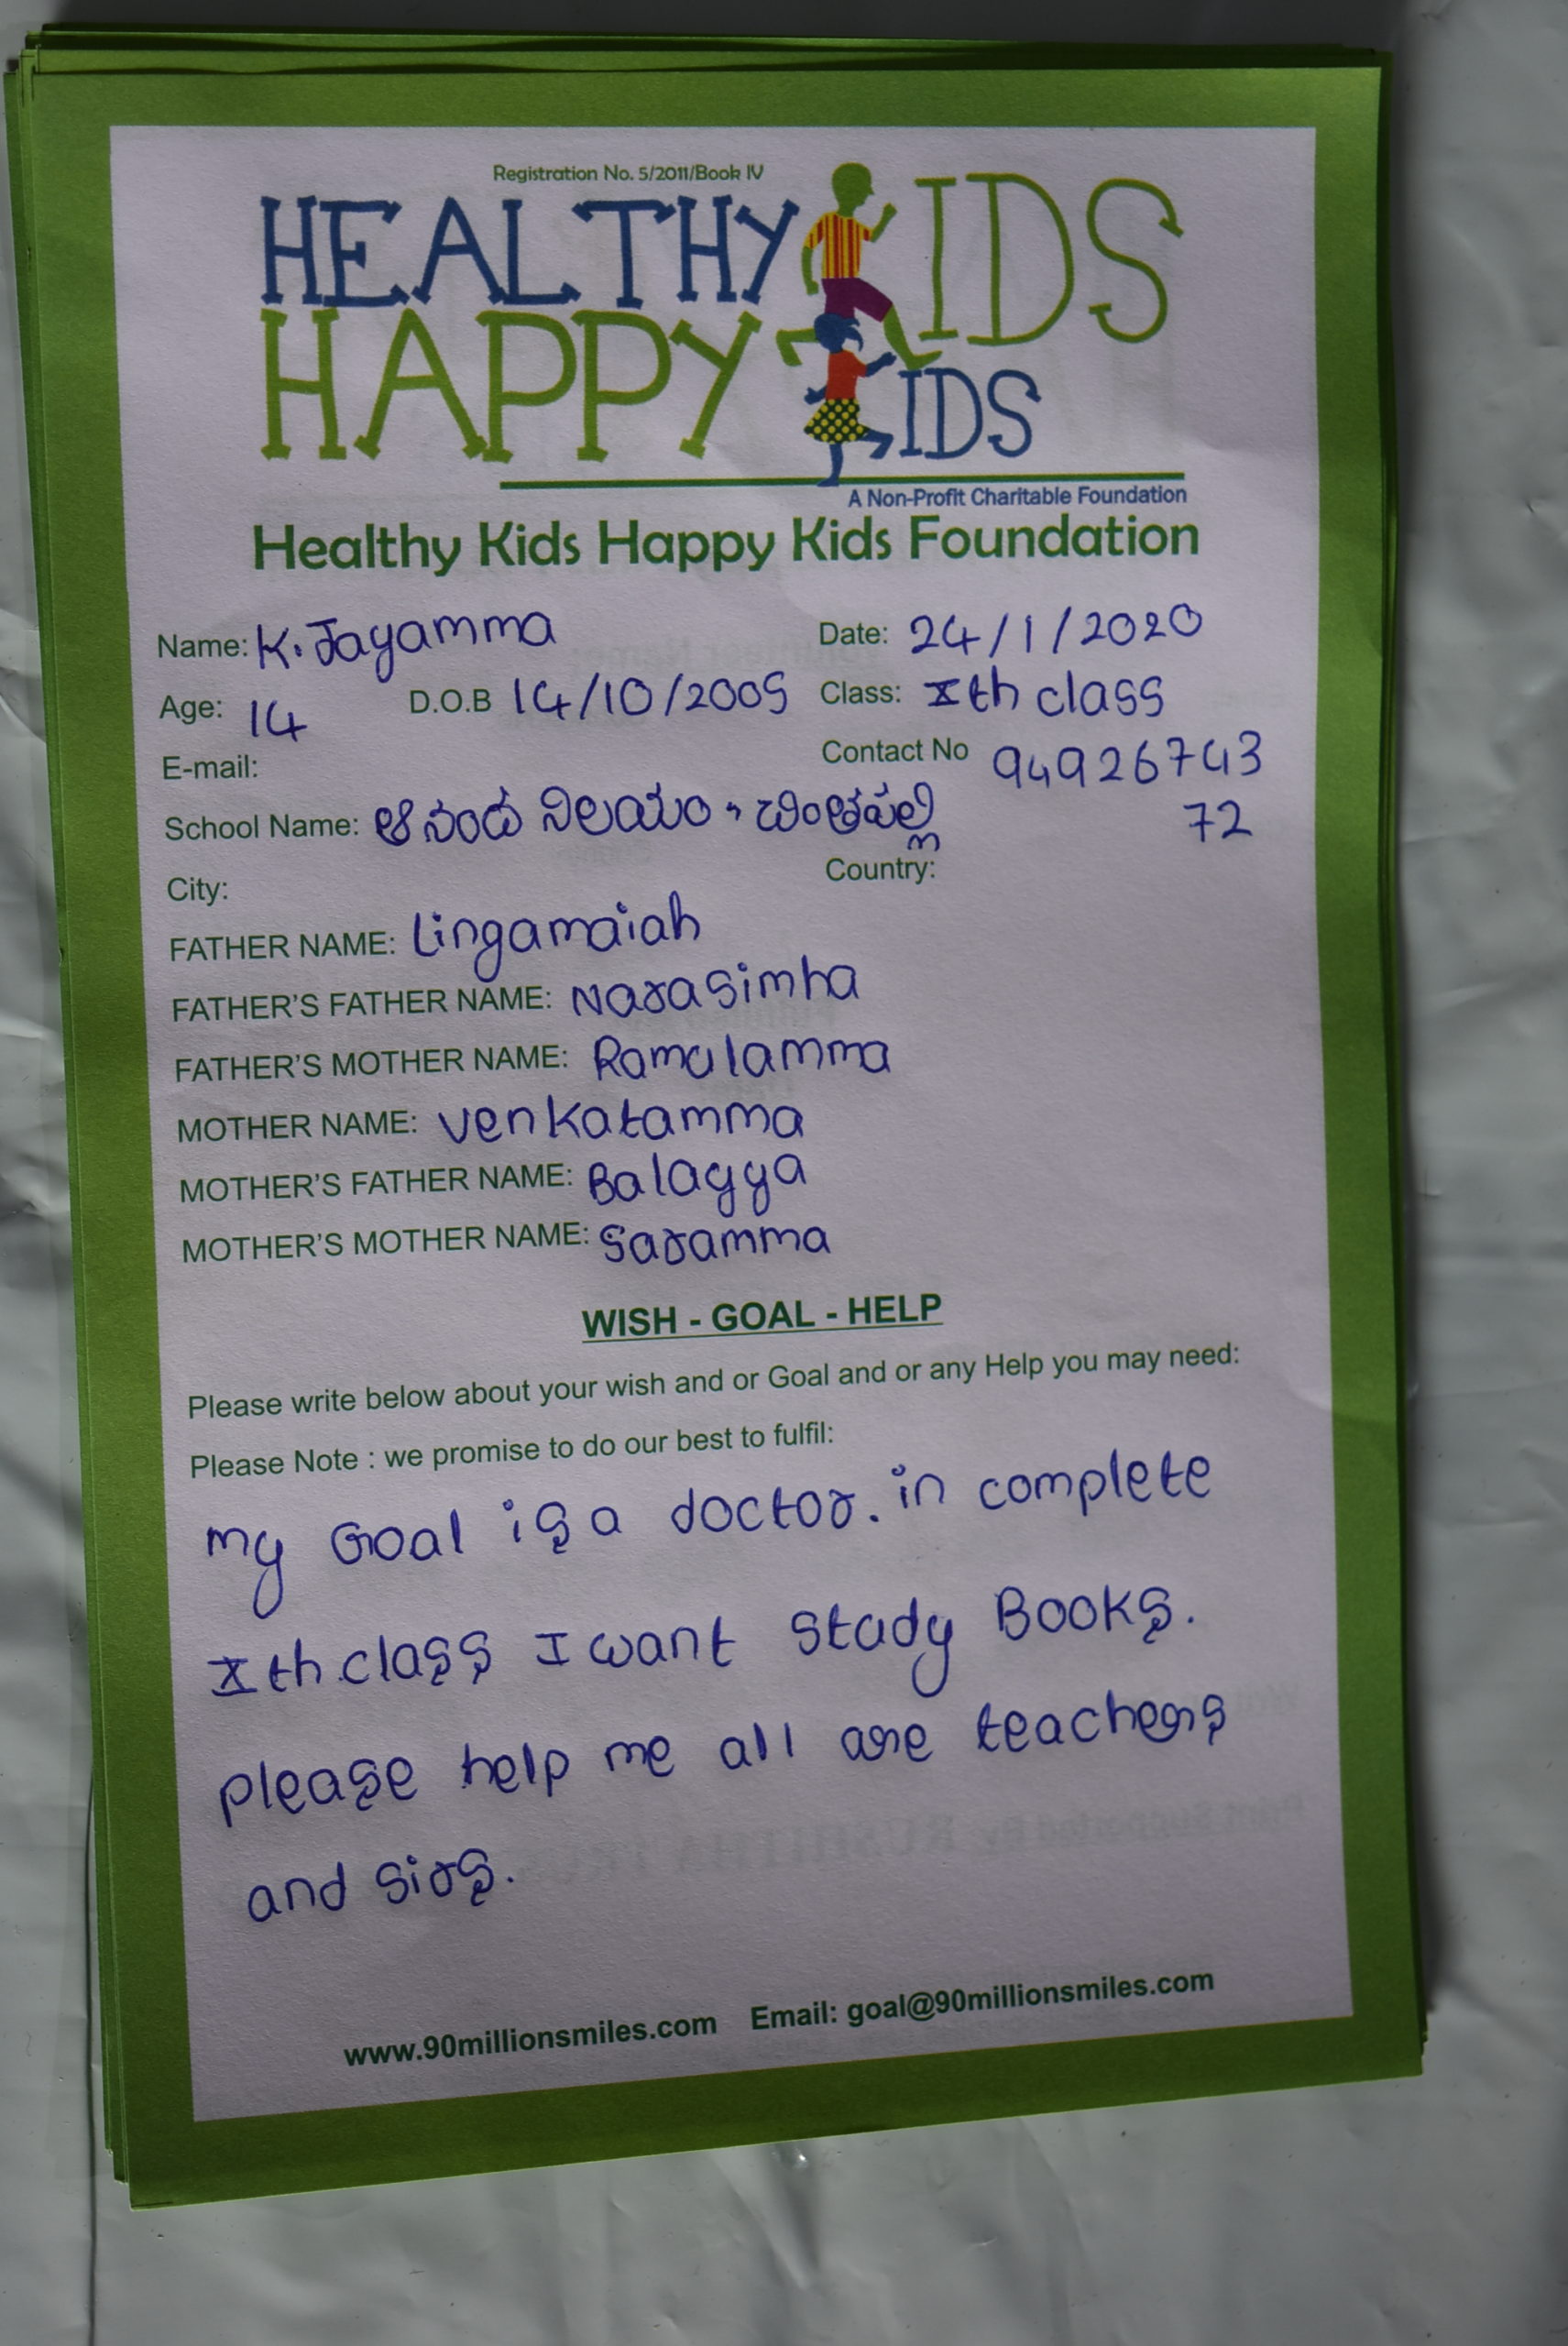 Registration No. 5/2011/Book IV
HEALTHY KIDS
HAPPY KIDS
A Non-Profit Charitable Foundation
Healthy Kids Happy Kids Foundation
Name: K. Jayamma Date: 24/1/2020
Age: 14 D.O.B 14/10/2005 Class: Xth class
E-mail: Contact No 94926743
72
School Name: ఆనంద నిలయం, చింతపల్లి
City: Country:
FATHER NAME: Lingamaiah
FATHER'S FATHER NAME: Narasimha
FATHER'S MOTHER NAME: Ramulamma
MOTHER NAME: Venkatamma
MOTHER'S FATHER NAME: Balayya
MOTHER'S MOTHER NAME: Saramma
WISH - GOAL - HELP
Please write below about your wish and or Goal and or any Help you may need:
Please Note : we promise to do our best to fulfil:
my Goal is a doctor. in complete
Xth class I want study Books.
please help me all are teachers
and sirs.
www.90millionsmiles.com Email: goal@90millionsmiles.com